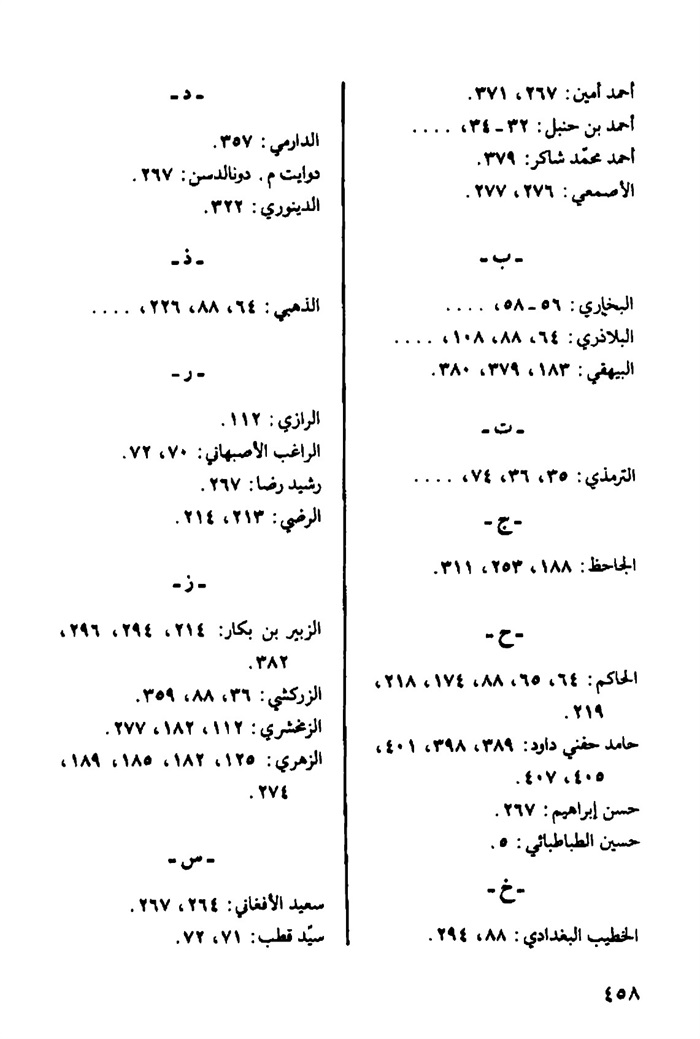 أحمد أمين: ٢٦٧، ٣٧١.
أحمد بن حنبل: ٣٢ - ٣٤، ....
أحمد محمّد شاكر: ٣٧٩.
الأصمعي: ٢٧٦، ٢٧٧.
- ب -
البخاري: ٥٦ - ٥٨، ....
البلاذري: ٦٤، ٨٨، ١٠٨، ....
البيهقي: ١٨٣، ٣٧٩، ٣٨٠.
- ت -
الترمذي: ٣٥، ٣٦، ٧٤، ....
- ج -
الجاحظ: ١٨٨، ٢٥٣، ٣١١.
- ح -
الحاكم: ٦٤، ٦٥، ٨٨، ١٧٤، ٢١٨،
٢١٩.
حامد حفني داود: ٣٨٩، ٣٩٨، ٤٠١،
٤٠٥، ٤٠٧.
حسن إبراهيم: ٢٦٧.
حسين الطباطبائي: ٥.
- خ -
الخطيب البغدادي: ٨٨، ٢٩٤.
- د -
الدارمي: ٣٥٧.
دوايت م. دونالدسن: ٢٦٧.
الدينوري: ٣٢٢.
- ذ -
الذهبي: ٦٤، ٨٨، ٢٢٦، ....
- ر -
الرازي: ١١٢.
الراغب الأصبهاني: ٧٠، ٧٢.
رشيد رضا: ٢٦٧.
الرضي: ٢١٣، ٢١٤.
- ز -
الزبير بن بكار: ٢١٤، ٢٩٤، ٢٩٦،
٣٨٢.
الزركشي: ٣٦، ٨٨، ٣٥٩.
الزمخشري: ١١٢، ١٨٢، ٢٧٧.
الزهري: ١٢٥، ١٨٢، ١٨٥، ١٨٩،
٢٧٤.
- س -
سعيد الأفغاني: ٢٦٤، ٢٦٧.
سيّد قطب: ٧١، ٧٢.
٤٥٨